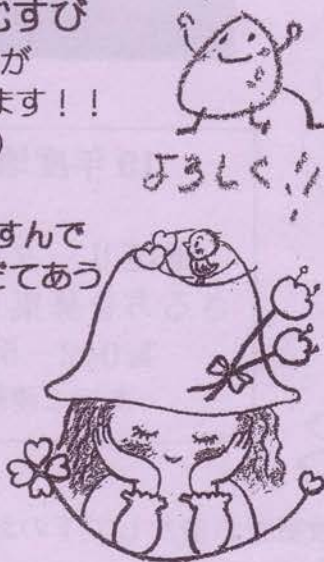 むすび
が
ます！！
）
よろしく!!
すんで
だてあう